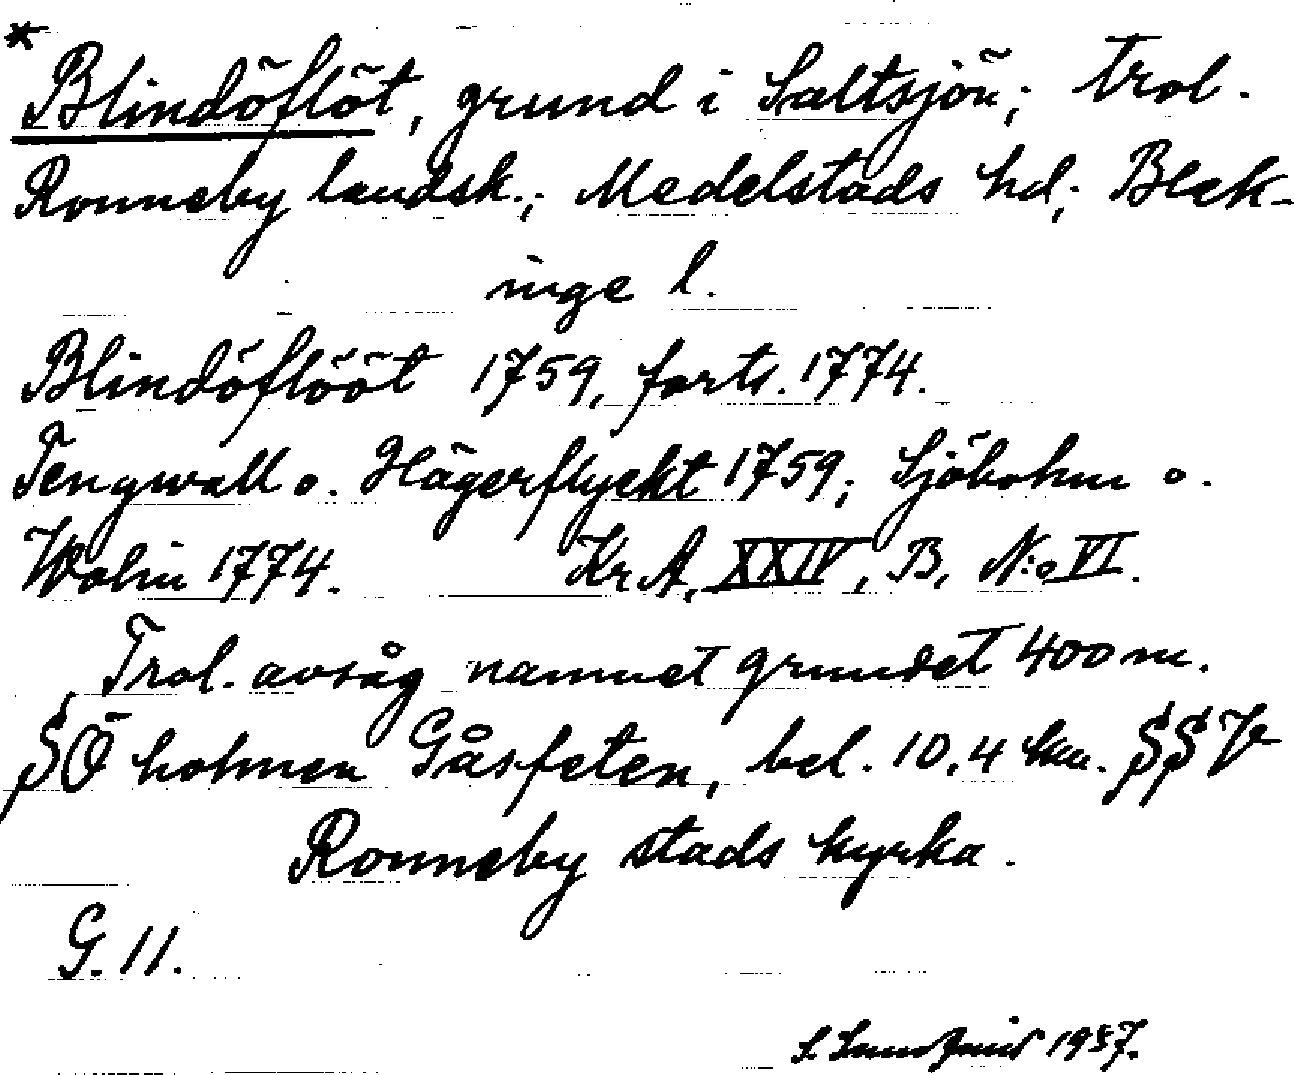 * Blindöflöt, grund i Saltsjön; trol.
Ronneby landsk.; Medelstads hd; Blek-
inge l.
Blindöflööt 1759, forts. 1774.
Tengwall o. Hägerflyckt 1759; Sjöbohm o.
Wolin 1774. Kr.A. XXIV, B, N:o VI.
Trol. avsåg namnet grundet 400 m.
§Ö holmen Gåsfeten, bel. 10,4 km. §§V
Ronneby stads kyrka.
G. 11.
S. 1957.